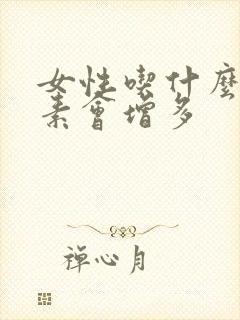 女性喫什麼
素會增多
禪心月